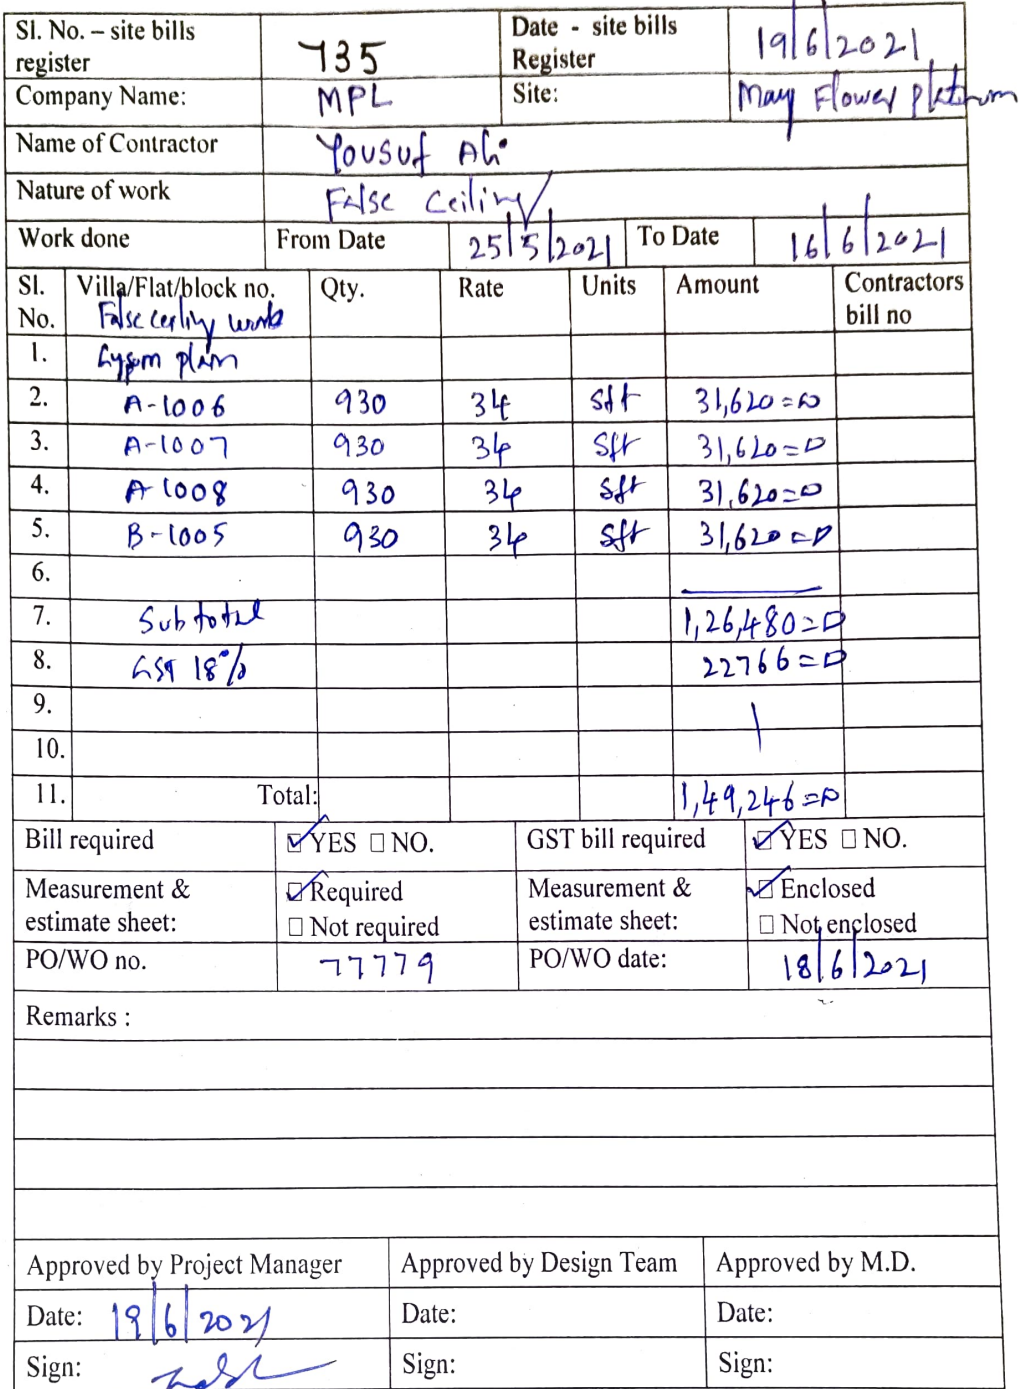 Sl. No. – site bills register 735 Date - site bills Register 19/6/2021
Company Name: MPL Site: May Flower Platinum
Name of Contractor Yousuf Ali
Nature of work False Ceiling
Work done From Date 25/5/2021 To Date 16/6/2021
Sl. No. Villa/Flat/block no. Qty. Rate Units Amount Contractors bill no
False ceiling work
1. Gypsm plain
2. A-1006 930 34 Sft 31,620=00
3. A-1007 930 34 Sft 31,620=0
4. A-1008 930 34 Sft 31,620=0
5. B-1005 930 34 Sft 31,620=0
6.
7. Sub total 1,26,480=0
8. GST 18% 22766=0
9.
10.
11. Total: 1,49,246=0
Bill required ☑ YES ☐ NO. GST bill required ☑ YES ☐ NO.
Measurement & estimate sheet: ☑ Required ☐ Not required Measurement & estimate sheet: ☑ Enclosed ☐ Not enclosed
PO/WO no. 77779 PO/WO date: 18/6/2021
Remarks :
Approved by Project Manager Approved by Design Team Approved by M.D.
Date: 19/6/2021 Date: Date:
Sign: Sign: Sign: